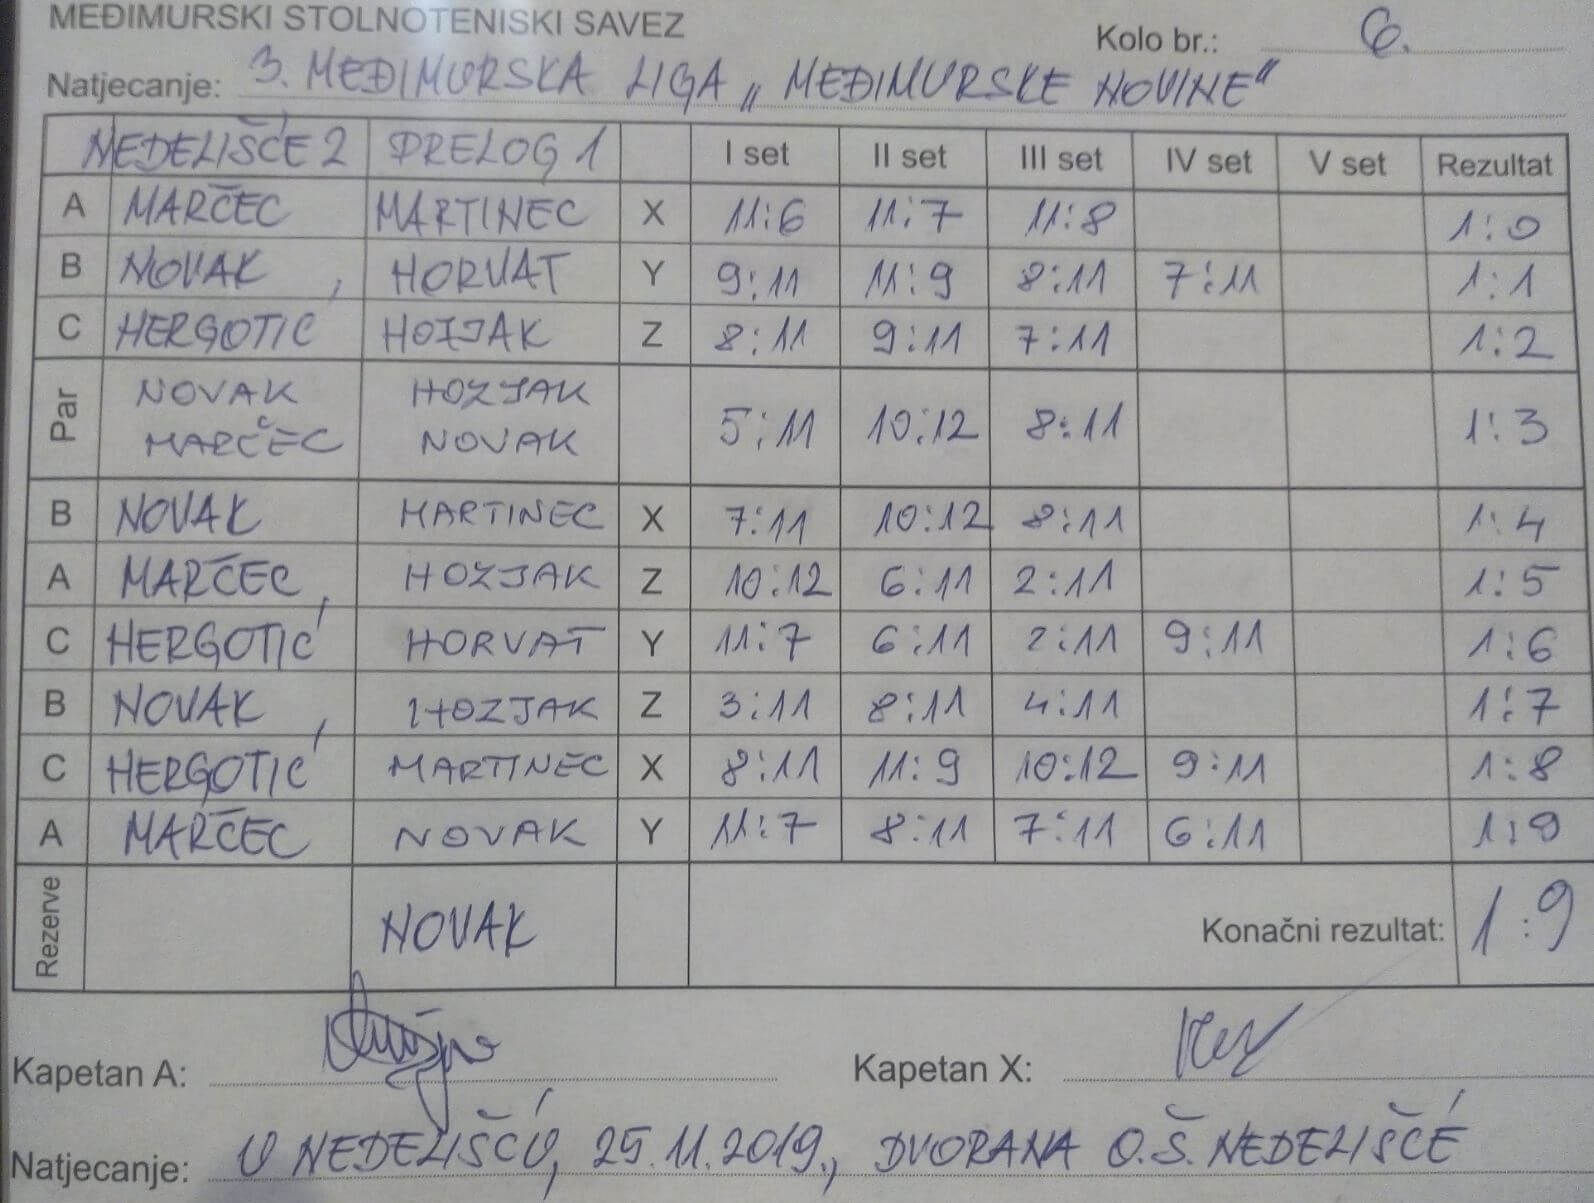 MEĐIMURSKI STOLNOTENISKI SAVEZ
Kolo br.: 6.
Natjecanje: 3. MEĐIMURSKA LIGA „MEĐIMURSKE NOVINE"
NEDELIŠĆE 2 PRELOG 1 I set II set III set IV set V set Rezultat
A MARČEC MARTINEC X 11:6 11:7 11:8 1:0
B NOVAK HORVAT Y 9:11 11:9 8:11 7:11 1:1
C HERGOTIĆ HOZJAK Z 8:11 9:11 7:11 1:2
Par NOVAK MARČEC HOZJAK NOVAK 5:11 10:12 8:11 1:3
B NOVAK MARTINEC X 7:11 10:12 8:11 1:4
A MARČEC HOZJAK Z 10:12 6:11 2:11 1:5
C HERGOTIĆ HORVAT Y 11:7 6:11 2:11 9:11 1:6
B NOVAK HOZJAK Z 3:11 8:11 4:11 1:7
C HERGOTIĆ MARTINEC X 8:11 11:9 10:12 9:11 1:8
A MARČEC NOVAK Y 11:7 8:11 7:11 6:11 1:9
Rezerve NOVAK Konačni rezultat: 1:9
Kapetan A: Kapetan X:
Natjecanje: U NEDELIŠĆU, 25.11.2019., DVORANA O.Š. NEDELIŠĆE